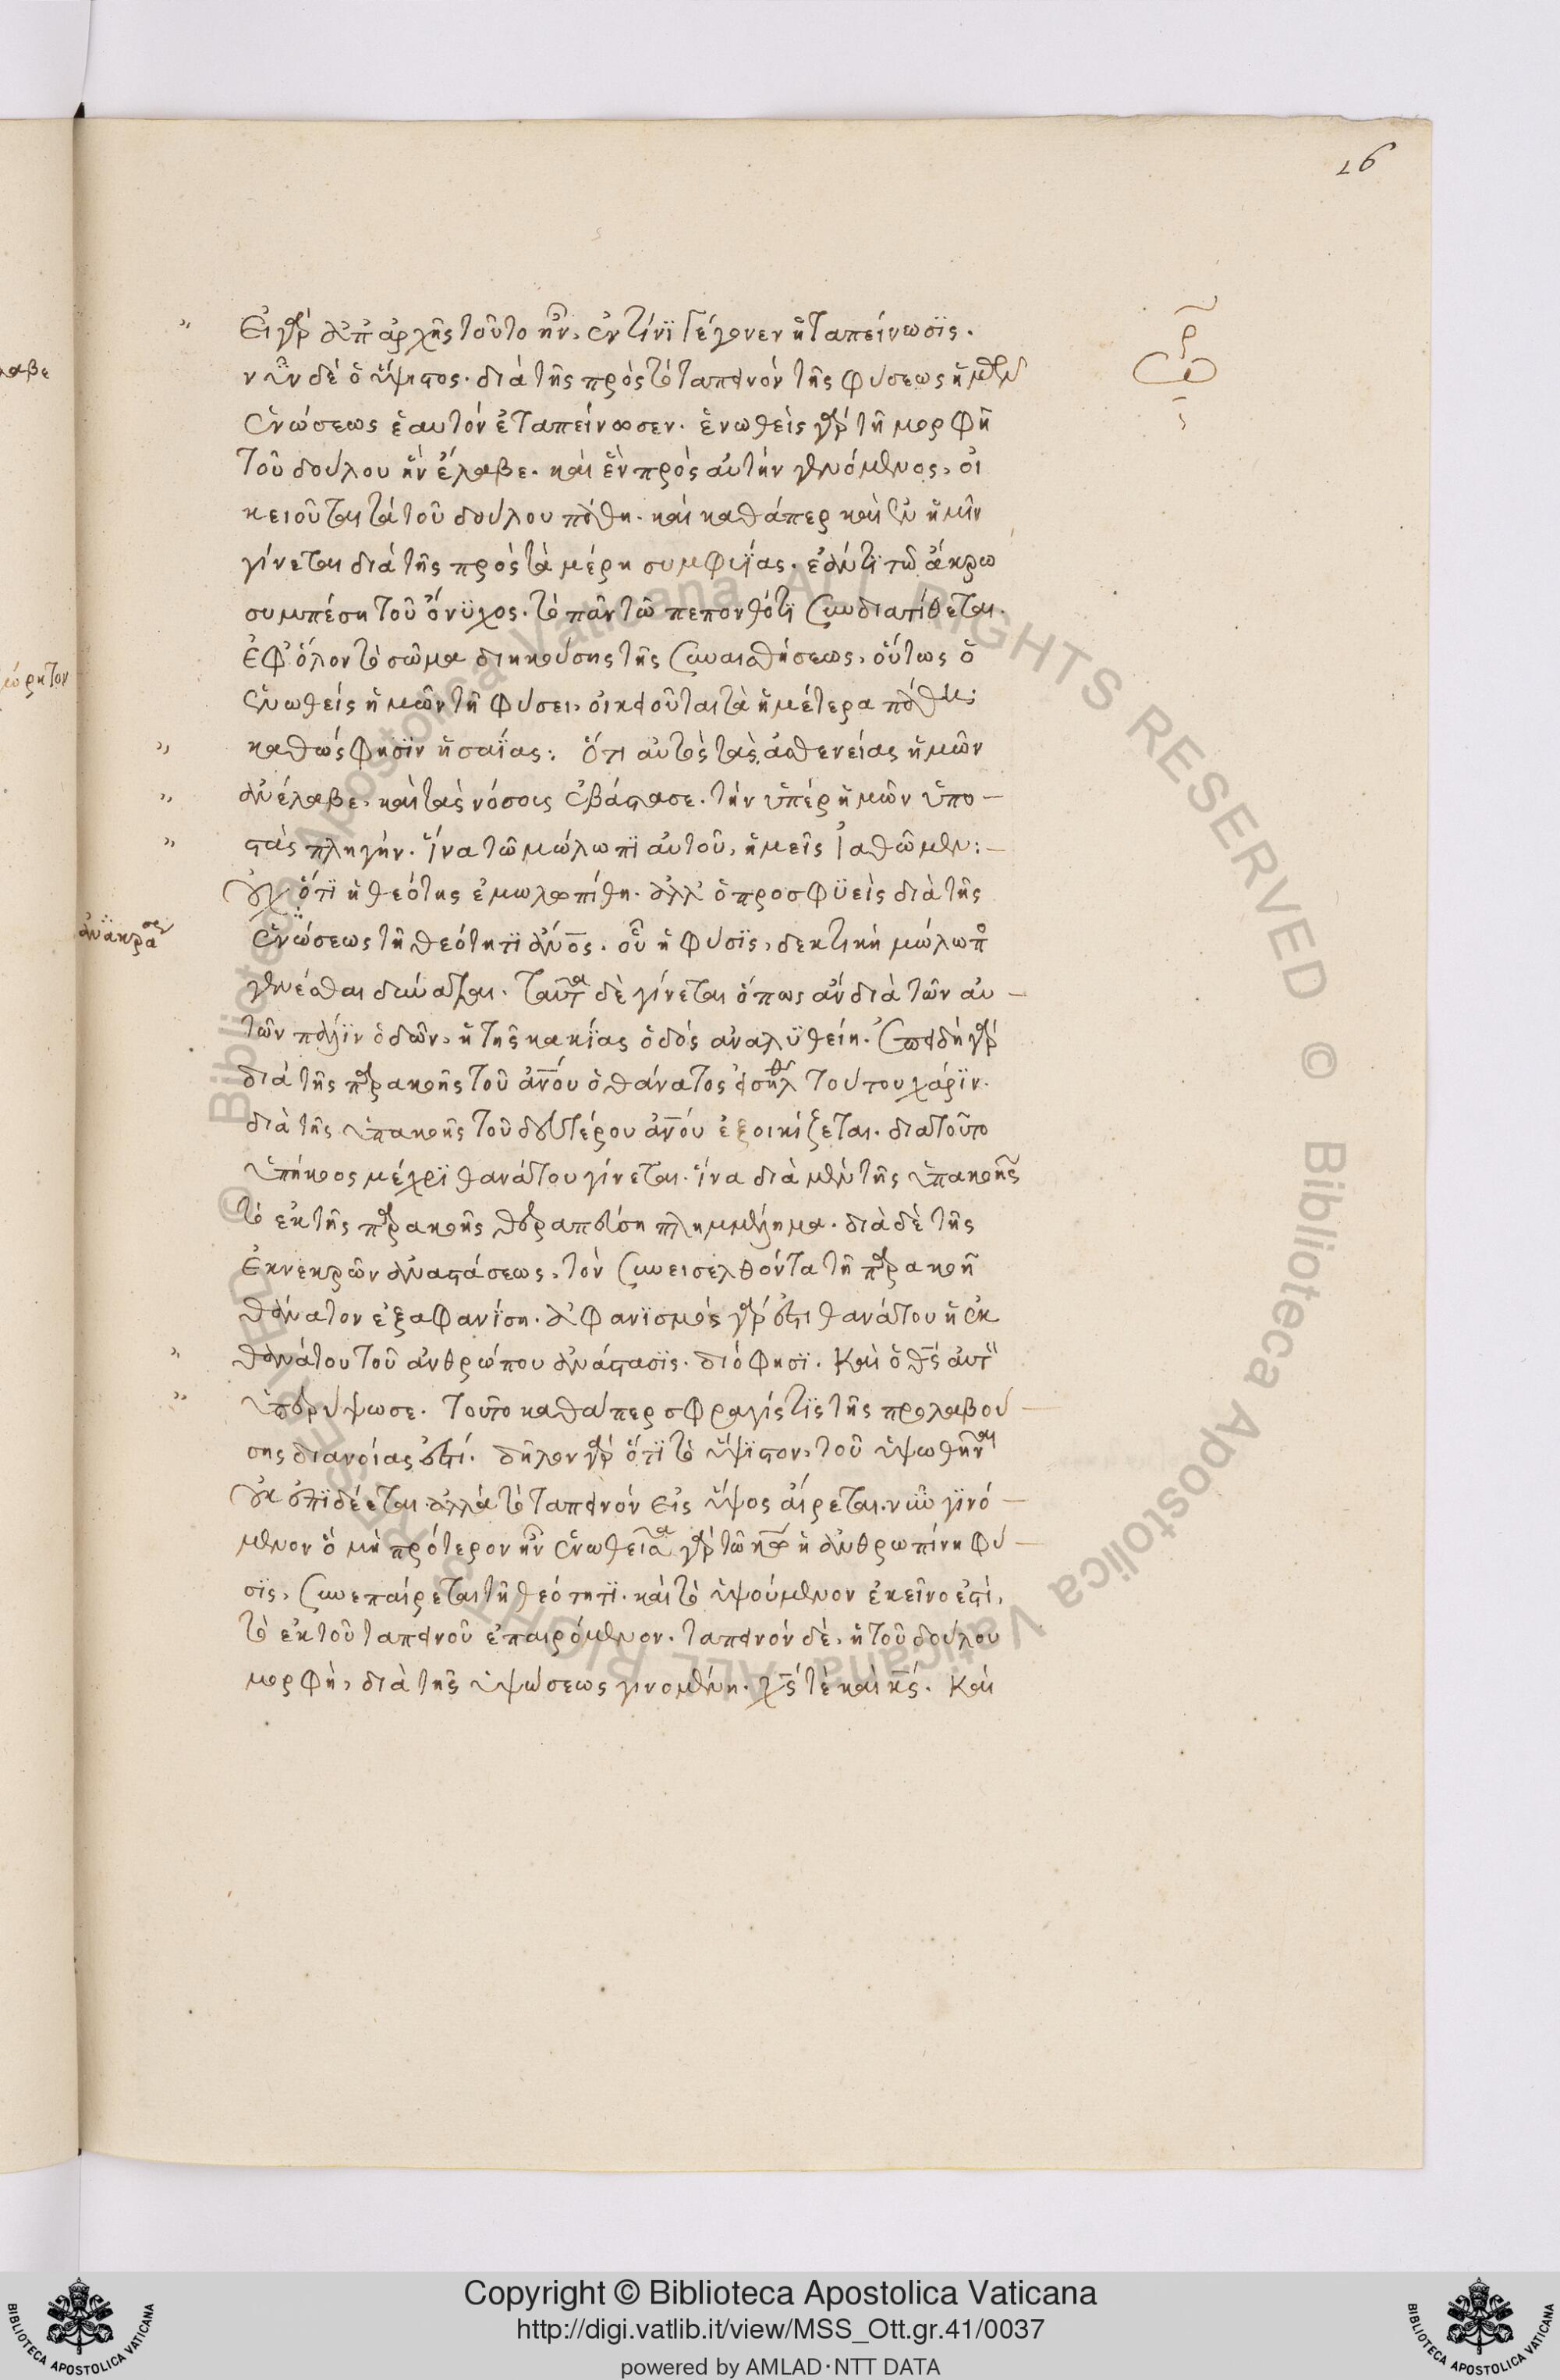 16
Εἰ γὰρ ἀπ' ἀρχῆς τοῦτο ἦν, ἐν τίνϊ γέγονεν ἡ ταπείνωσϊς.
νῦν δὲ ὁ ὕψιστος. διὰ τῆς πρὸς τὸ ταπεινὸν τῆς φύσεως ἡμῶν
ἑνώσεως ἑαυτὸν ἐταπείνωσεν. ἑνωθεὶς γὰρ τῆ μορφῆ
τοῦ δούλου ἣν ἔλαβε. καὶ ἓν πρὸς αὐτὴν γενόμενος, οἰ
κειοῦται τὰ τοῦ δούλου πάθη. καὶ καθάπερ καὶ ἐν ἡμῖν
γίνεται διὰ τῆς πρὸς τὰ μέρη συμφυΐας. ἐάν τϊ τῶ ἄκρω
συμπέση τοῦ ὄνϋχος. τὸ πᾶν τῶ πεπονθότϊ συνδιατίθεται.
ἐφ' ὅλον τὸ σῶμα διηκούσης τῆς συναισθήσεως, οὕτως ὁ
ἑνωθεὶς ἡμῶν τῆ φύσει, οἰκειοῦται τὰ ἡμέτερα πάθη·
καθώς φησϊν ἡσαΐας: Ὅτι αὐτὸς τὰς ἀσθενείας ἡμῶν
ἀνέλαβε, καὶ τὰς νόσους ἐβάστασε. τὴν ὑπὲρ ἡμῶν ὑπο–
στὰς πληγήν. ἵνα τῶ μώλωπϊ αὐτοῦ, ἡμεῖς ἰαθῶμεν:–
οὐχ ὅτϊ ἡ θεότης ἐμωλωπίσθη. ἀλλ' ὁ προσφϋεὶς διὰ τῆς
ἑνώσεως τῆ θεότητϊ ἄνος. οὗ ἡ φύσϊς, δεκτικὴ μώλωπος
γενέσθαι δύναται. ταῦτα δὲ γίνεται ὅπως ἂν διὰ τῶν αὐ–
τῶν πάλϊν ὁδῶν, ἡ τῆς κακΐας ὁδὸς ἀναλϋθείη. ἐπειδὴ γὰρ
διὰ τῆς παρακοῆς τοῦ ἀνόυ ὁ θάνατος εἰσῆλθε τούτου χάρϊν.
διὰ τῆς ὑπακοῆς τοῦ δευτέρου ἀνόυ ἐξοικίζεται. διατοῦτο
ὑπήκοος μέχρϊ θανάτου γίνεται. ἵνα διὰ μὲν τῆς ὑπακοῆς
τὸ ἐκ τῆς παρακοῆς θεραπεύση πλημμέλημα. διὰ δὲ τῆς
ἐκνεκρῶν ἀναστάσεως, τὸν συνεισελθόντα τῆ παρακοῆ
θάνατον ἐξαφανίση. ἀφανϊσμὸς γάρ ἐστι θανάτου ἡ ἐκ
θανάτου τοῦ ἀνθρώπου ἀνάστασϊς. διό φησϊ. Καὶ ὁ θς αὐτὸν
ὑπερύψωσε. τοῦτο καθάπερ σφραγίς τϊς τῆς προλαβού–
σης διανοίας ἐστί. δῆλον γὰρ ὅτϊ τὸ ὕψϊστον, τοῦ ὑψωθῆναι
οὐκ ἐπϊδέεται. ἀλλὰ τὸ ταπεινὸν εἰς ὕψος αἴρεται. νῦν γϊνό–
μενον ὃ μὴ πρότερον ἦν ἑνωθεῖσα γὰρ τῶ κω ἡ ἀνθρωπίνη φύ–
σϊς, συνεπαίρεται τῆ θεότητϊ. καὶ τὸ ὑψούμενον ἐκεῖνο ἐστί,
τὸ ἐκ τοῦ ταπεινοῦ ἐπαιρόμενον. ταπεινὸν δὲ, ἡ τοῦ δούλου
μορφὴ, διὰ τῆς ὑψώσεως γινομένη. χς τὲ καὶ κς. Καὶ
Copyright © Biblioteca Apostolica Vaticana
http://digi.vatlib.it/view/MSS_Ott.gr.41/0037
powered by AMLAD·NTT DATA
BIBLIOTECA APOSTOLICA VATICANA
BIBLIOTECA APOSTOLICA VATICANA